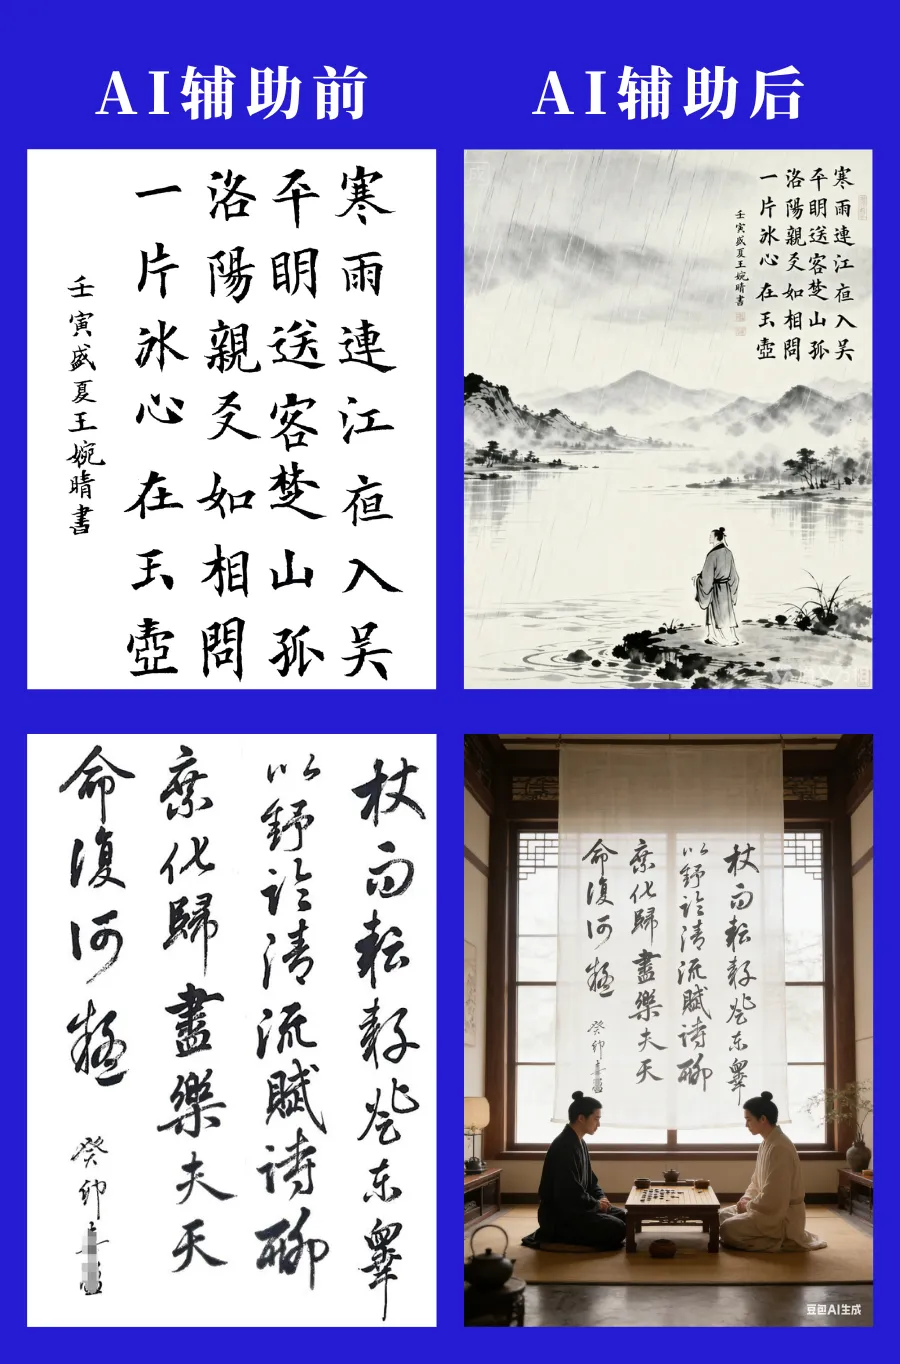 AI辅助前
AI辅助后
寒雨連江夜入吴
平明送客楚山孤
洛陽親友如相問
一片冰心在玉壺
壬寅盛夏王婉晴書
寒雨連江夜入吴
平明送客楚山孤
洛陽親友如相問
一片冰心在玉壺
壬寅盛夏王婉晴書
杖而耘耔登东皋
以舒啸清流賦诗聊
乘化歸盡樂夫天
命復何疑
癸卯
杖而耘耔登东皋
以舒啸清流賦诗聊
乘化歸盡樂夫天
命復何疑
癸卯
豆包AI生成